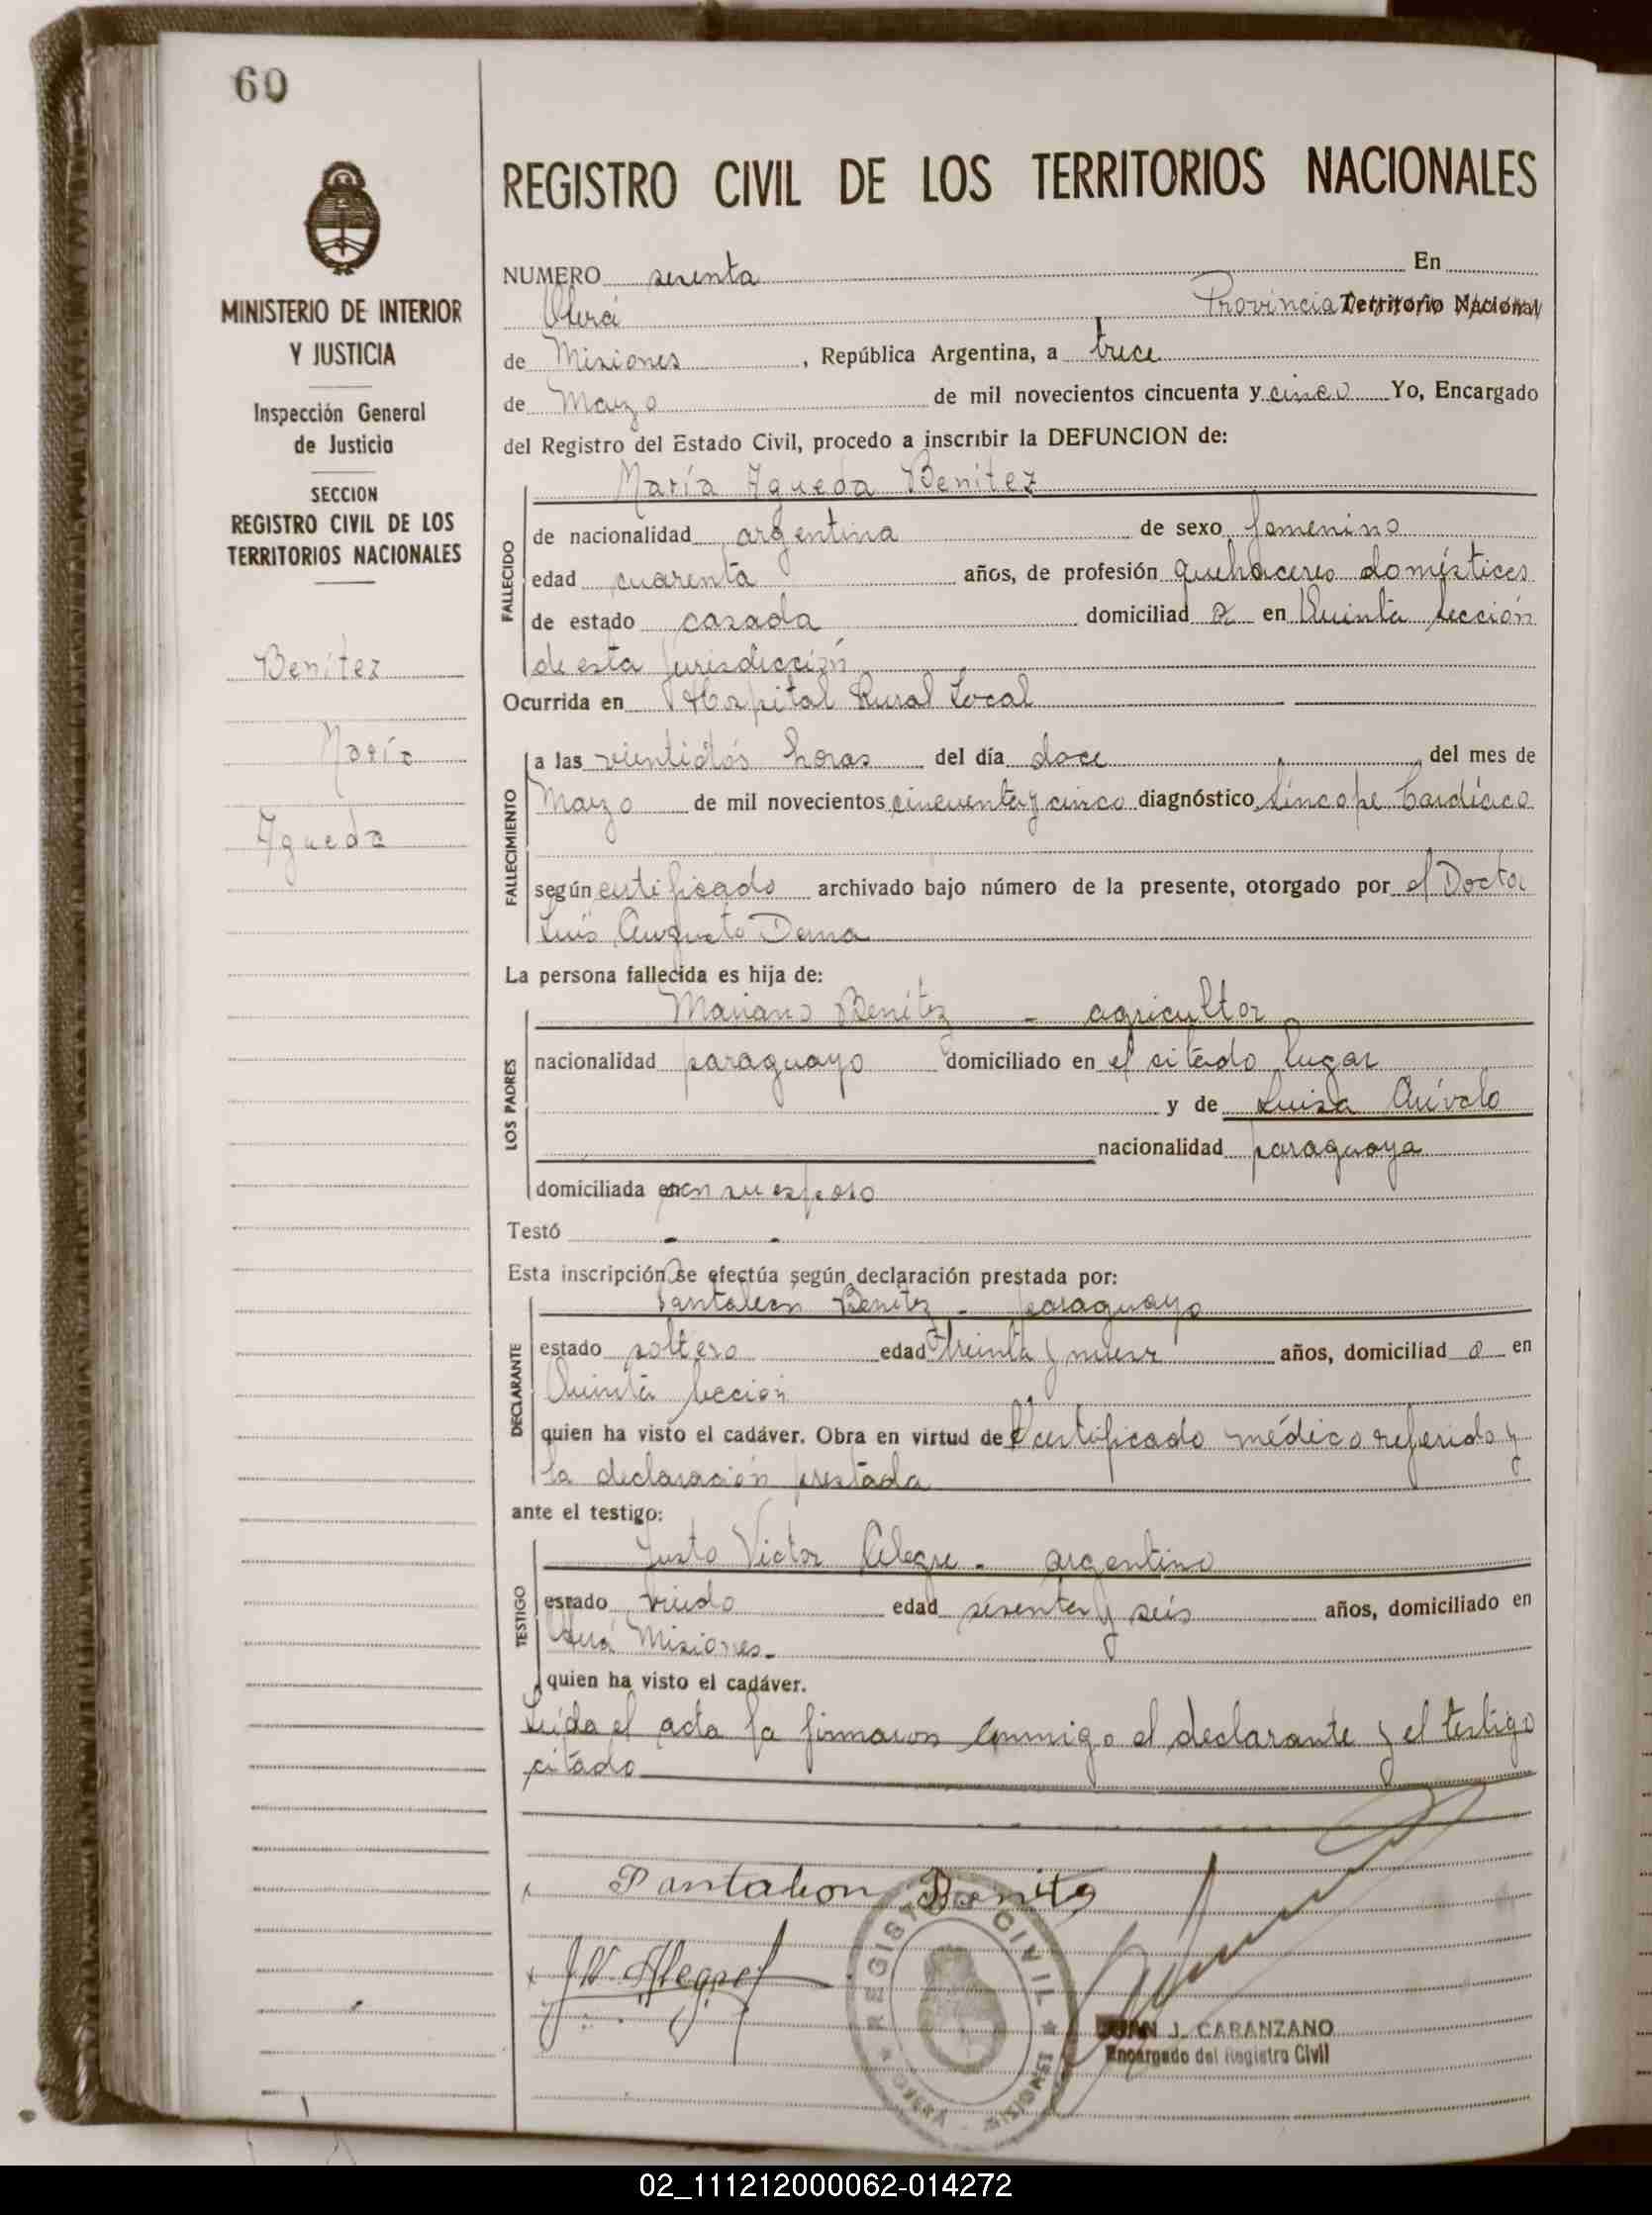 60
MINISTERIO DE INTERIOR
Y JUSTICIA
Inspección General
de Justicia
SECCION
REGISTRO CIVIL DE LOS
TERRITORIOS NACIONALES
Benítez
María
Agueda
REGISTRO CIVIL DE LOS TERRITORIOS NACIONALES
NUMERO sesenta En
Oberá Provincia Territorio Nacional
de Misiones, República Argentina, a trece
de Marzo de mil novecientos cincuenta y cinco Yo, Encargado
del Registro del Estado Civil, procedo a inscribir la DEFUNCION de:
María Agueda Benítez
FALLECIDO
de nacionalidad argentina de sexo femenino
edad cuarenta años, de profesión quehaceres domésticos
de estado casada domiciliad a en Quinta Sección
de esta jurisdicción
Ocurrida en Hospital Rural Local
FALLECIMIENTO
a las vientidós horas del día doce del mes de
Marzo de mil novecientos cincuenta y cinco diagnóstico Síncope Cardíaco
según certificado archivado bajo número de la presente, otorgado por el Doctor
Luis Augusto Derna
La persona fallecida es hija de:
LOS PADRES
Mariano Benítez - agricultor
nacionalidad paraguayo domiciliado en el citado lugar
y de Luisa Arévalo
nacionalidad paraguaya
domiciliada en con su esposo
Testó - -
Esta inscripción se efectúa según declaración prestada por:
DECLARANTE
Pantaleón Benítez - paraguayo
estado soltero edad treinta y nueve años, domiciliad o en
Quinta Sección
quien ha visto el cadáver. Obra en virtud del certificado médico referido y
la declaración prestada
ante el testigo:
TESTIGO
Justo Victor Alegre - argentino
estado viudo edad sesenta y seis años, domiciliado en
Oberá Misiones.-
quien ha visto el cadáver.
Leída el acta la firmaron conmigo el declarante y el testigo
citado
Pantaleon Benites
J. V. Alegre
REGISTRO CIVIL
OBERA - MISIONES
JUAN J. CARANZANO
Encargado del Registro Civil
02_111212000062-014272